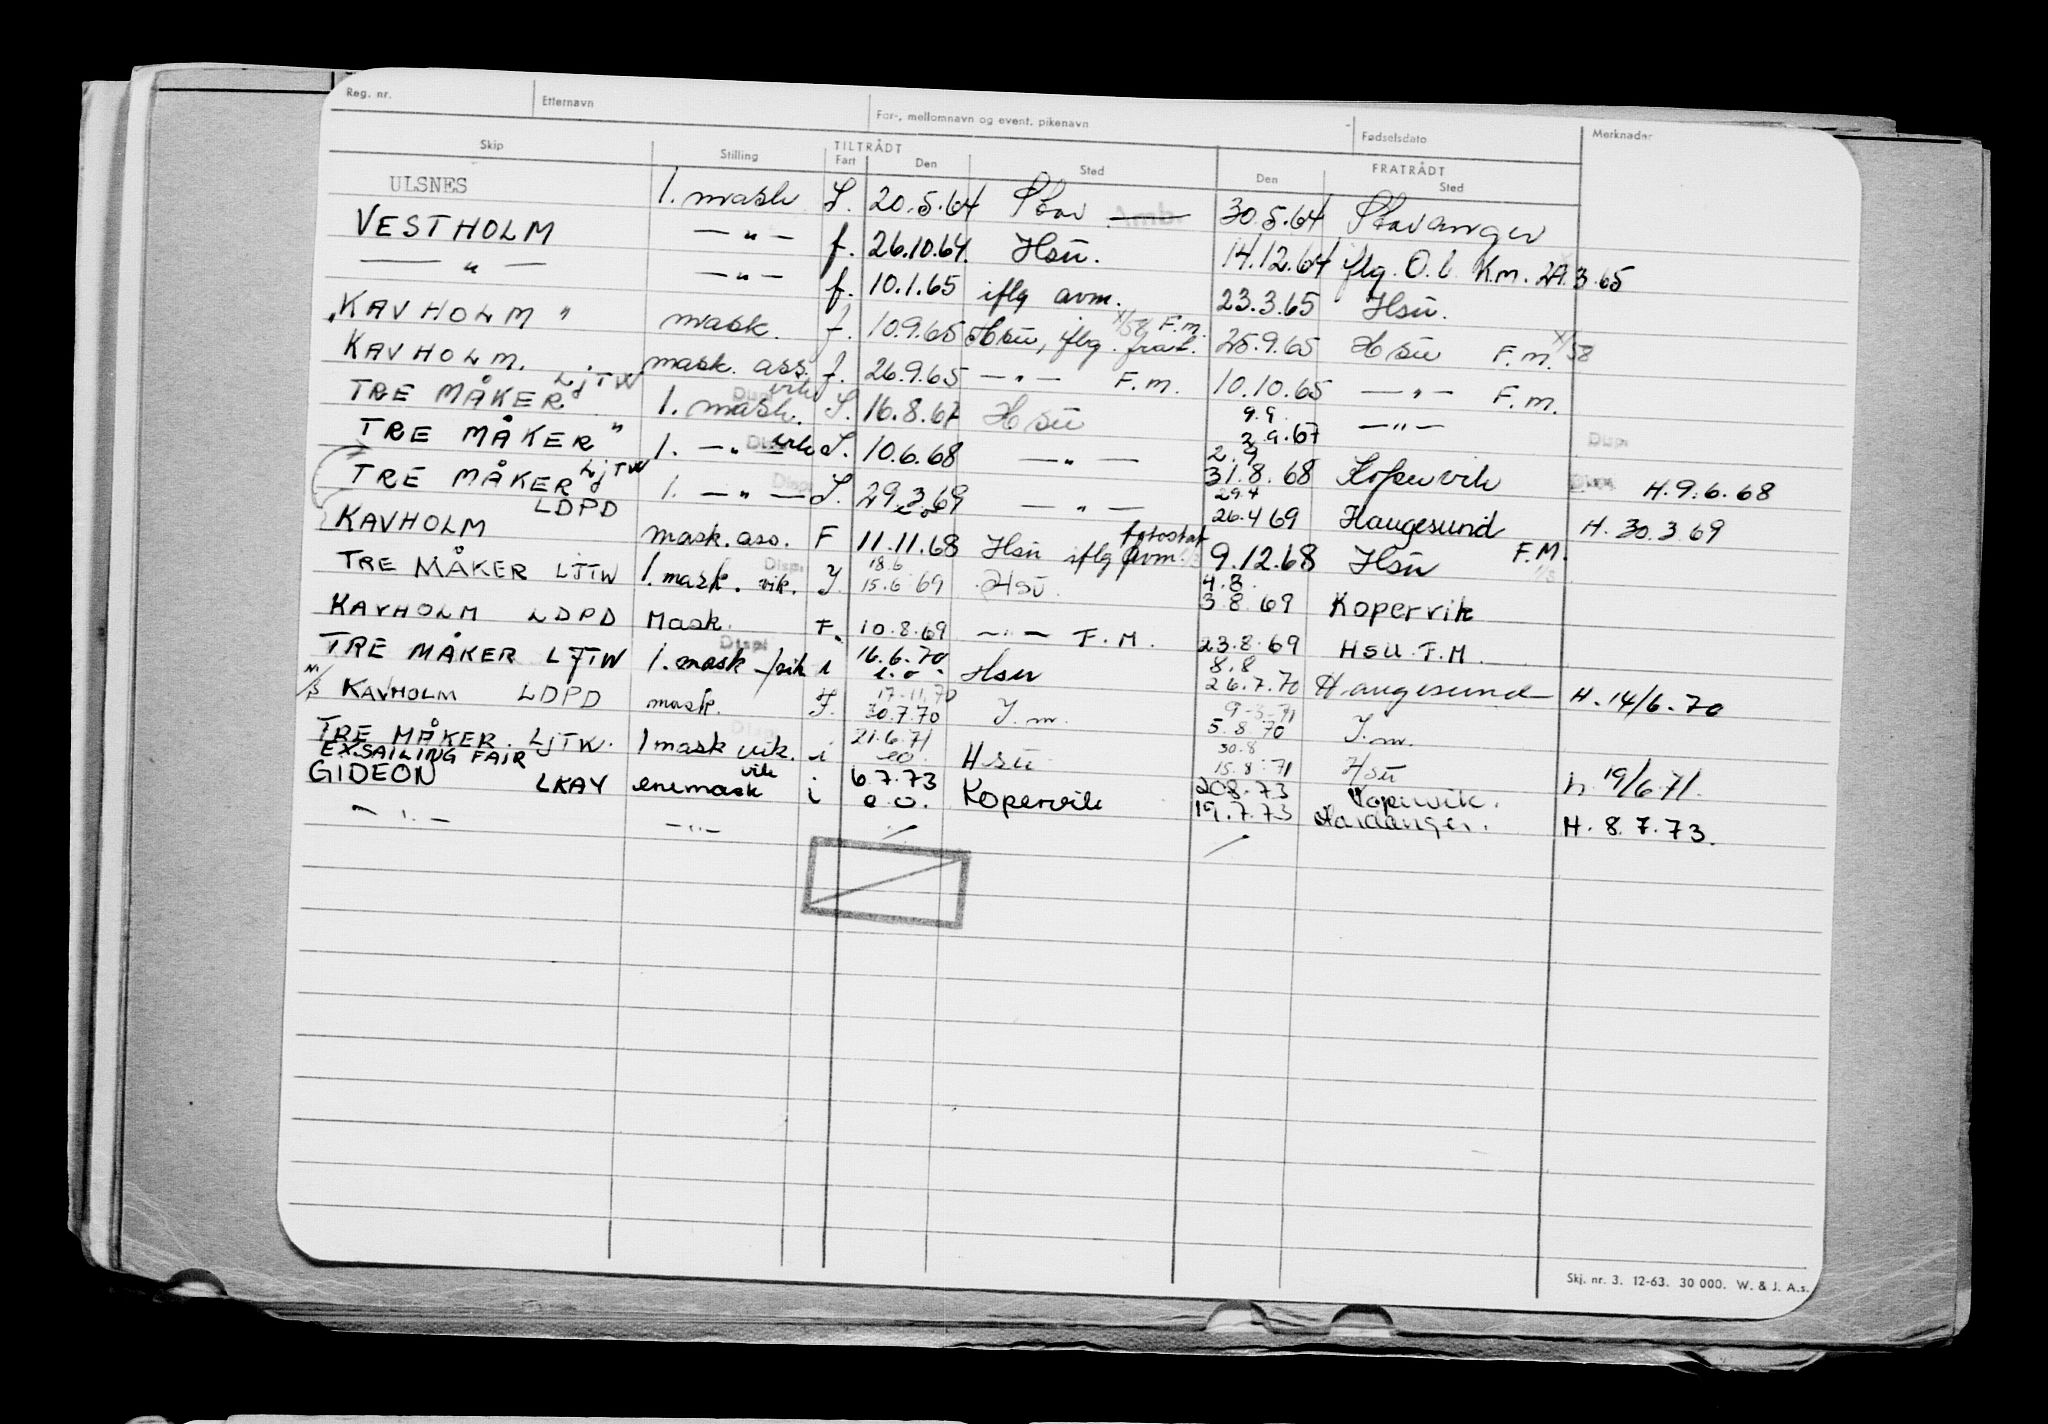 Reg. nr. Etternavn For-, mellomnavn og event. pikenavn Fødselsdato Merknader
TILTRÅDT FRATRÅDT
Skip Stilling Fart Den Sted Den Sted
ULSNES 1. mask S. 20.5.64 Stav Amb. 30.5.64 Stavanger
VESTHOLM — " — f. 26.10.64. Hsu. 14.12.64 iflg. O.l. Km. 29.3.65
— " — — " — f. 10.1.65 iflg avm. 23.3.65 Hsu.
"KAVHOLM" mask. f. 10.9.65 Hsu, iflg. frat. X/58 F.m. 25.9.65 Hsu F.m. X/58
KAVHOLM. mask. ass. f. 26.9.65 — " — F.m. 10.10.65 — " — F.m.
TRE MÅKER LJTW 1. mask. vik Disp. S. 16.8.67 Hsu 9.9. 2.9.67 — " — Disp.
TRE MÅKER" 1. — " — vik Disp. S. 10.6.68 — " — 2.9 31.8.68 Kopervik Disp. H.9.6.68
TRE MÅKER LJTW 1. — " — Disp. S. 29.3.69 e.o. — " — 29.4 26.4 69 Haugesund H. 30.3.69
KAVHOLM LDPD mask. ass. F 11.11.68 Hsu iflg avm. fotostat 9.12.68 Hsu F.M.
TRE MÅKER LJTW 1. mask. vik. Disp. 18.6 15.6.69 Hsu. 4.8. 3.8.69 Kopervik
KAVHOLM LDPD Mask. F. 10.8.69 — " — F.M. 23.8.69 HSU F.M.
TRE MÅKER LJTW 1. mask vik Disp. i 16.6.70 e.o. Hsu 8.8 26.7.70 Haugesund H. 14/6.70
M/S KAVHOLM LDPD mask. F. 17.11.70 30.7.70 F.m. 9.3.71 5.8.70 F.m.
TRE MÅKER. LJTW. 1 mask vik. Disp. i 21.6.71 eo. Hsu 30.8 15.8.71 Hsu h 19/6.71.
EX.SAILING FAIR
GIDEON LKAY enemask vik i 6.7.73 e.o. Kopervik 20.8.73 Kopervik.
— " — — " — 19.7.73 Hardanger. H. 8.7.73.
Skj. nr. 3. 12-63. 30 000. W. & J. A.s.